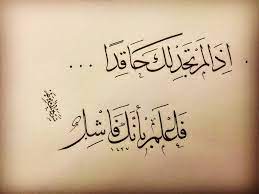 إِذَا لَمْ تَجِدْ لَكَ حَاقِدًا ...
فَاعْلَمْ بِأَنَّكَ فَاشِلٌ
١٤٣٧